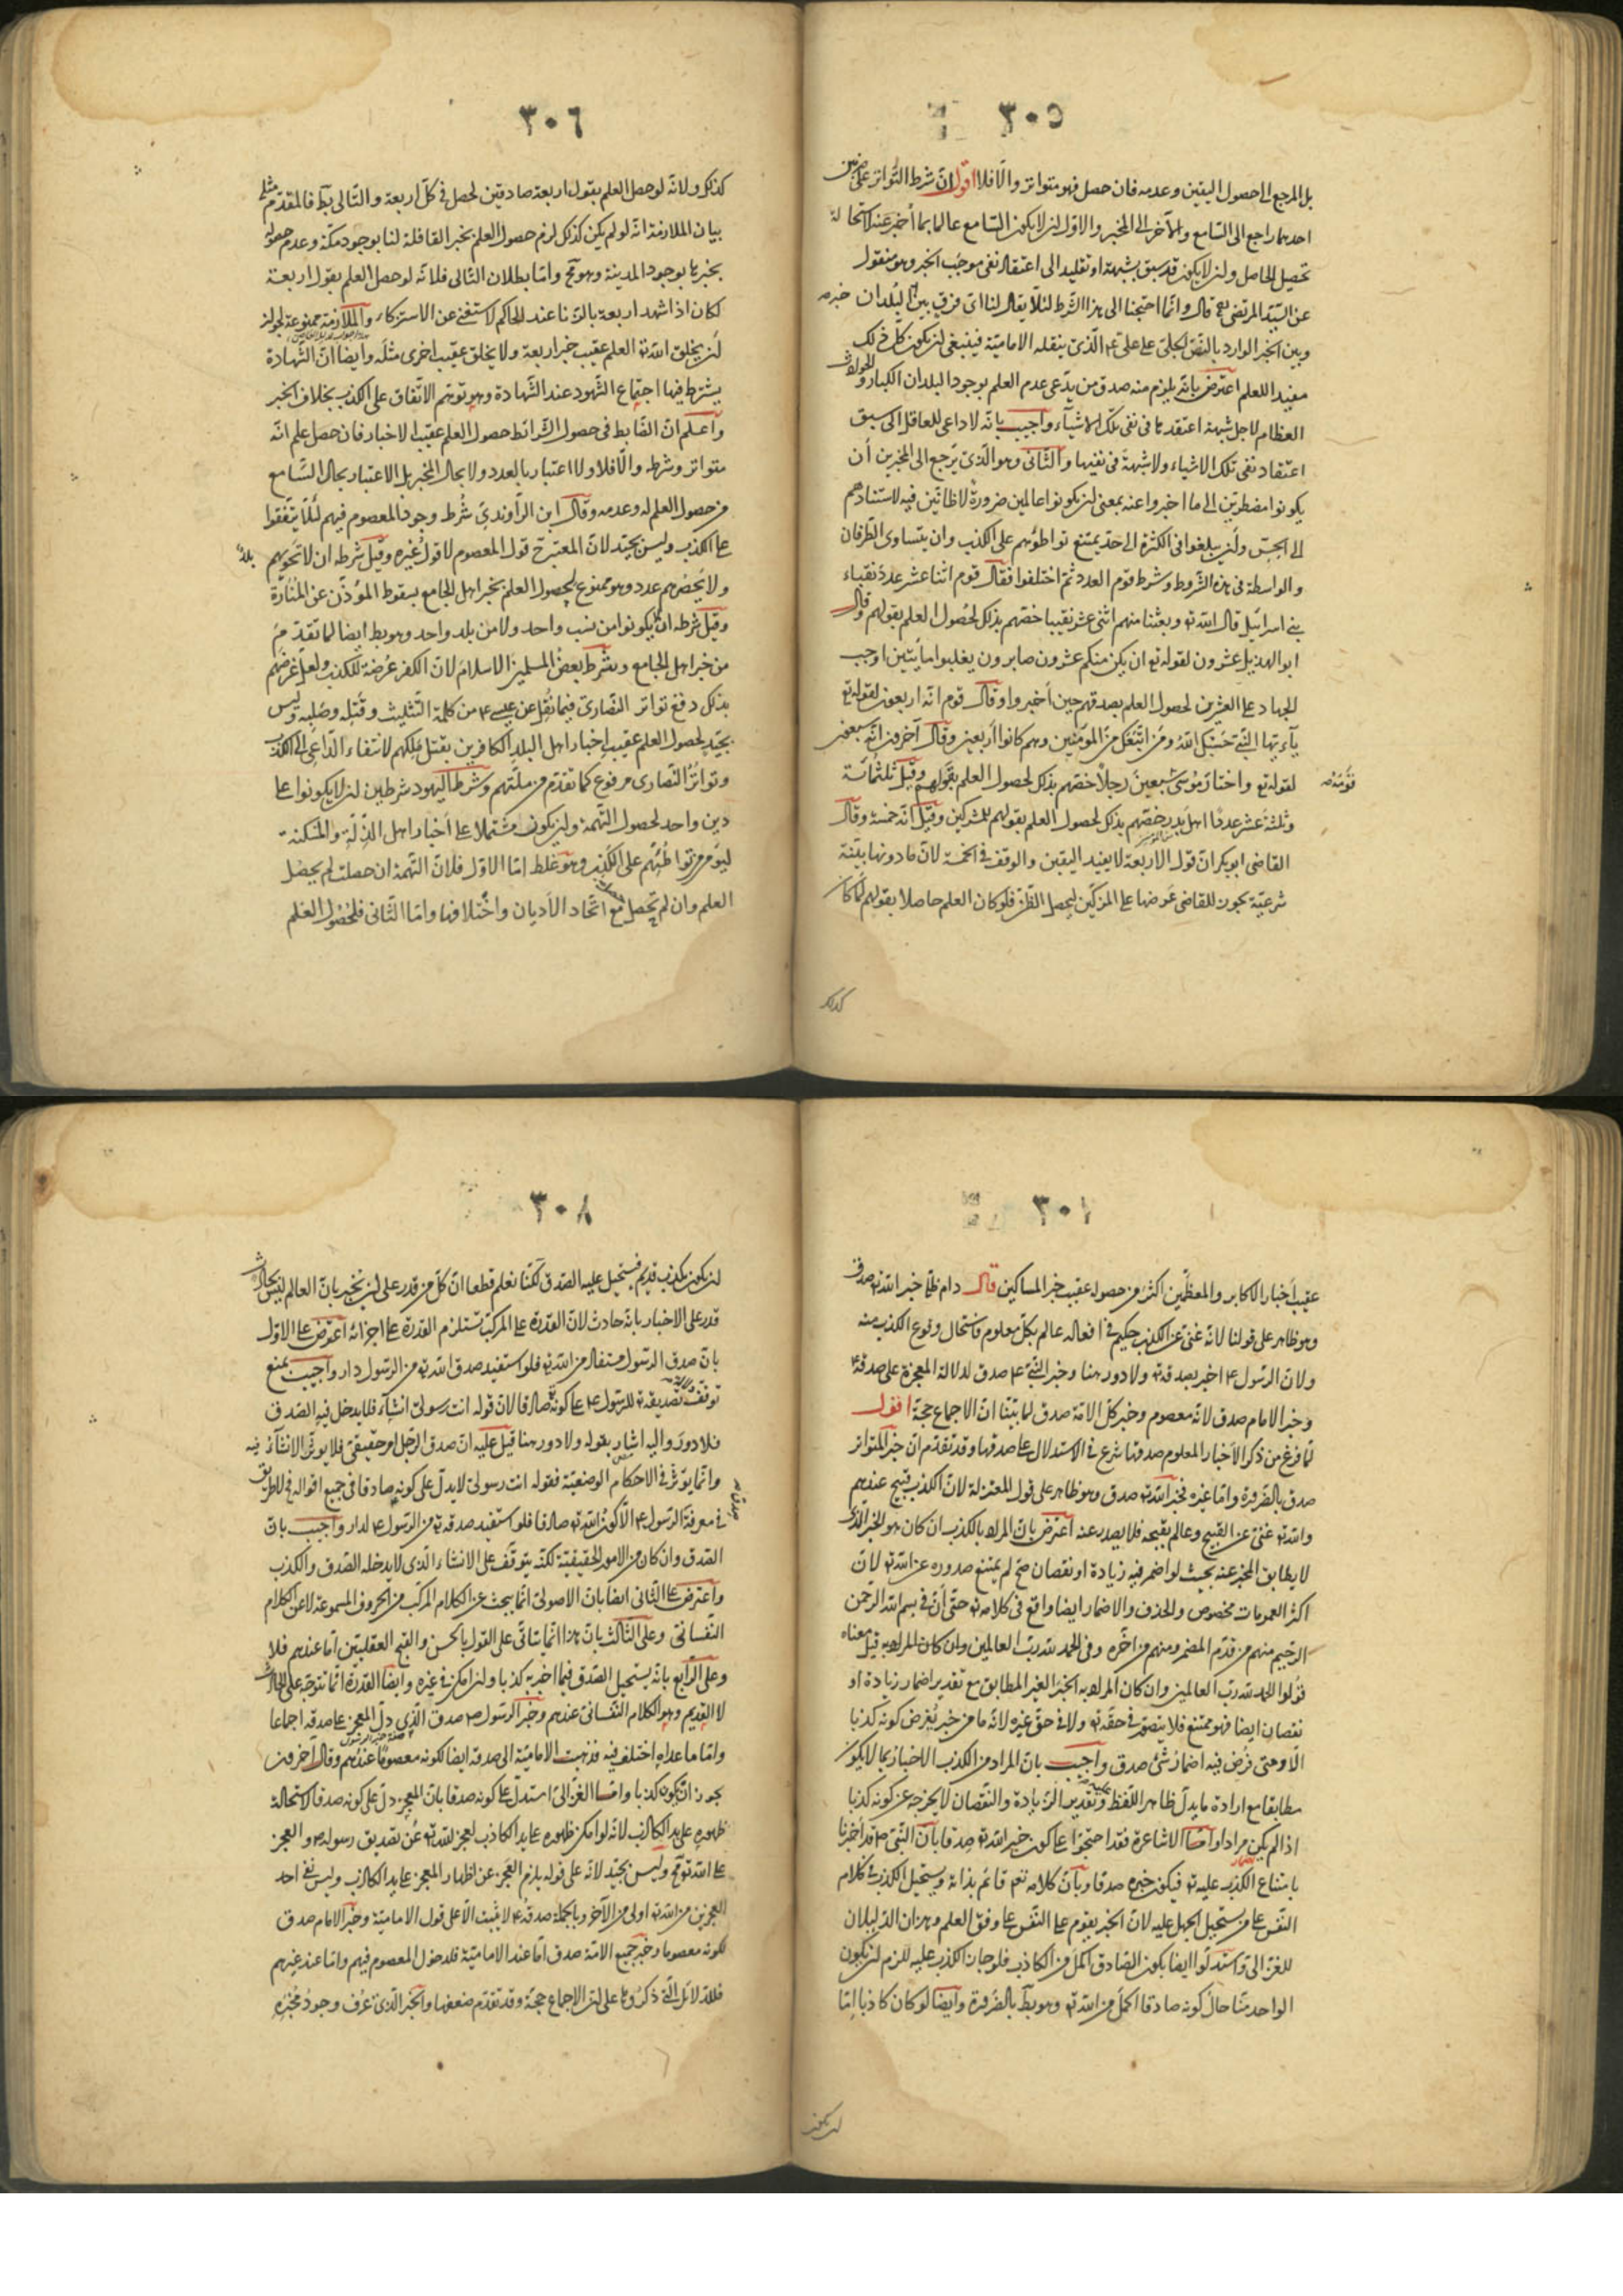 ٣٠٥
بل المرجع الى حصول اليقين وعدمه فان حصل فهو متواتر والّا فلا اقول انّ شرط التواتر على ضربين
احدهما راجع الى السّامع والآخر الى المخبر والاوّل ان لا يكون السّامع عالما بما أخبر عنه لاستحالة
تحصيل الحاصل وان لا يكون قد سبق بشبهة او تقليد الى اعتقاد نفى موجب الخبر وهو منقول
عن السّيّد المرتضى قال وانّما احتجنا الى هذا الشّرط لئلّا يقال لنا اىّ فرق بين خبر البلدان
وبين الخبر الوارد بالنصّ الجلىّ على علىّ ع الّذى ينقله الاماميّة فينبغى ان يكون كلّ ذلك
مفيدا للعلم اعترض بانّه يلزم منه صدق من يدّعى عدم العلم بوجود البلدان الكبار والحوادث
العظام لاجل شبهة اعتقدها فى نفى تلك الاشيآء واجيب بانّه لا داعى للعاقل الى سبق
اعتقاد نفى تلك الاشياء ولا شبهة فى نفيها والثّانى وهو الّذى يرجع الى المخبرين أن
يكونوا مضطرين الى ما اخبروا عنه بمعنى ان يكونوا عالمين ضرورةً لا ظانّين فيه لاستنادهم
الى الحسّ وان يبلغوا فى الكثرة الى حدّ يمتنع تواطؤهم على الكذب وان يتساوى الطّرفان
والواسطة فى هذه الشّروط وشرط قوم العدد ثمّ اختلفوا فقال قوم اثنا عشر عدد نقباء
بنى اسرائيل قال الله تع وبعثنا منهم اثنى عشر نقيبا خصّهم بذلك لحصول العلم بقولهم وقال
ابو الهذيل عشرون لقوله تع ان يكن منكم عشرون صابرون يغلبوا مائتين اوجب
الجهاد على العشرين لحصول العلم بصدقهم حين أخبروا وقال قوم انّه اربعون لقوله تع
يآ ايّها النّبىّ حسبك اللهُ ومن اتّبعك من المؤمنين وهم كانوا أربعين وقال آخرون انّه سبعون
لقوله تع واختار مُوسى سبعين رجلاً خصّهم بذلك لحصول العلم بقولهم وقيل ثلثمائة
قَوْمَهُ
وثلثة عشر عدد اهل بدر خصّهم بذلك لحصول العلم بقولهم للمشركين وقيل انّه خمسة وقال
القاضى ابو بكر انّ قول الاربعة لا يفيد اليقين والوقف فى الخمسة لانّ ما دونها بيّنة
شرعيّة يجوز للقاضى عرضها على المزكّين ليحصل الظّنّ فلو كان العلم حاصلا بقولهم لما كان
كذلك
٣٠٦
كذلك ولانّه لو حصل العلم بقول اربعة صادقين لحصل فى كلّ اربعة والتّالى بط فالمقدّم مثله
بيان الملازمة انّه لو لم يكن كذلك لزم حصول العلم بخبر القافلة لنا بوجود مكّة وعدم حصوله
بخبرها بوجود المدينة وهو مح وامّا بطلان التّالى فلانّه لو حصل العلم بقول اربعة
لكان اذا شهد اربعة بالزّنا عند الحاكم لاستغنى عن الاستزكاء والملازمة ممنوعة لجواز
أن يخلق الله تع العلم عقيب خبر اربعة ولا يخلق عقيب اخرى مثله وايضا انّ الشّهادة
يشترط فيها اجتماع الشّهود عند الشّهادة وهو توهم الاتّفاق على الكذب بخلاف الخبر
واعلم انّ الضّابط فى حصول الشّرائط حصول العلم عقيب الاخبار فان حصل علم انّه
متواتر وشرطه والّا فلا ولا اعتبار بالعدد ولا بحال المخبر بل الاعتبار بحال السّامع
من حصول العلم له وعدمه وقال ابن الرّاوندىّ شُرط وجود المعصوم فيهم لئلّا يتّفقوا
على الكذب وليس بجيّد لانّ المعتبر ح قول المعصوم لا قول غيره وقيل شرطه ان لا تحويهم بلد
ولا يحصرهم عدد وهو ممنوع لحصول العلم بخبر اهل الجامع بسقوط المؤذّن عن المنارة
وقيل شرطه ان لا يكونوا من نسب واحد ولا من بلد واحد وهو بط ايضا لما تقدّم
من خبر اهل الجامع وشرط بعض المسلمين الاسلام لانّ الكفر عُرضة للكذب ولعلّ غرضهم
بذلك دفع تواتر النّصارى فيما نُقل عن عيسى ع من كلمة التّثليث وقتله وصلبه وليس
بجيّد لحصول العلم عقيب اخبار اهل البلد الكافرين بقتل ملكهم لانتفاء الدّاعى الى الكذب
وتواتر النّصارى مرفوع كما تقدّم من ملّتهم وشرط اليهود شرطين ان لا يكونوا على
دين واحد لحصول التّهمة وان يكون مشتملا على أخبار اهل الذّلّة والمسكنة
ليؤمن تواطئهم على الكذب وهو غلط امّا الاوّل فلانّ التّهمة ان حصلت لم يحصل
العلم وان لم تحصل مع اتّحاد الأديان واختلافها وامّا الثّانى فلحصول العلم
عقيب أخبار الاكابر والمعظّمين اكثر من حصوله عقيب خبر المساكين قال دام ظلّه خبر الله تع صدق
وهو ظاهر على قولنا لانّه غنىّ عن الكذب حكيم فى افعاله عالم بكلّ معلوم فاستحال وقوع الكذب منه
ولانّ الرّسول ع اخبر بصدقه تع ولا دور هنا وخبر النّبىّ ع صدق لدلالة المعجزة على صدقه ع
وخبر الامام صدق لانّه معصوم وخبر كلّ الامّة صدق لما بيّنا انّ الاجماع حجّة اقول
لمّا فرغ من ذكر الأخبار المعلوم صدقها شرع فى الاستدلال على صدقها وقد تقدّم انّ خبر المتواتر
صدق بالضّرورة وامّا غيره فخبر الله تع صدق وهو ظاهر على قول المعتزلة لانّ الكذب قبيح عندهم
والله تع غنىّ عن القبيح وعالم بقبحه فلا يصدر عنه اعترض بانّ المراد بالكذب ان كان هو الخبر الّذى
لا يطابق المخبر عنه بحيث لو اضمر فيه زيادة او نقصان صحّ لم يمتنع صدوره عن الله تع لانّ
اكثر العمومات مخصوص والحذف والاضمار ايضا واقع فى كلامه تع حتّى أنّ فى بسم الله الرّحمن
الرّحيم منهم من قدّم المضمر ومنهم من اخّره وفى الحمد لله ربّ العالمين وان كان المراد به قيل معناه
قولوا الحمد لله ربّ العالمين وان كان المراد به الخبر الغير المطابق مع تقدير اضمار زيادة او
نقصان ايضا فهو ممتنع فلا يتصوّر فى حقّه تع ولا فى حقّ غيره لانّه ما من خبر يُفرض كونه كذبا
الّا ومتى فرض فيه اضمار شئ صدق واجيب بانّ المراد من الكذب الاخبار بما لا يكون
مطابقا مع ارادة ما يدلّ ظاهر اللفظ وتقدير الزّيادة والنّقصان لا يخرجه عن كونه كذبا
اذا لم يكن مرادا وامّا الاشاعرة فقد احتجّوا على كون خبر الله تع صدقا بانّ النّبىّ ص قد أخبرنا
بامتناع الكذب عليه تع فيكون خبره صدقا وبانّ كلامه تع قائم بذاته ويستحيل الكذب فى كلام
النّفس على من يستحيل الجهل عليه لانّ الخبر يقوم على النّفس على وفق العلم وهذان الدّليلان
للغزالى واستدلّوا ايضا بكون الصّادق اكمل من الكاذب فلو جاز الكذب عليه للزم ان يكون
الواحد منّا حال كونه صادقا اكمل من الله تع وهو بط بالضّرورة وايضا لو كان كاذبا امّا
ان يكون
٣٠٨
ان يكون بكذب قديم فيستحيل عليه الصّدق لكنّا نعلم قطعا انّ كلّ من قدر على ان يخبر بانّ العالم ليس بحادث
قدر على الاخبار بانّه حادث لانّ القدرة على المركّب تستلزم القدرة على اجزائه اعترض على الاوّل
بانّ صدق الرّسول مستفاد من الله تع فلو استفيد صدق الله تع من الرّسول دار واجيب بمنع
توقّف تصديقه تع للرّسول ع على كونه صادقا لانّ قوله انت رسولى انشآء فلا يدخل فيه الصّدق
فلا دور واليه اشار بقوله ولا دور هنا قيل عليه انّ صدق الرّجل امر حقيقىّ فلا يؤثّر الانشآء فيه
وانّما يؤثّر فى الاحكام الوضعيّة فقوله انت رسولى لا يدلّ على كونه صادقا فى جميع اقواله فلا طريق
فى معرفة الرّسول ع الّا كون الله تع صادقا فلو استفيد صدقه تع من الرّسول ع لدار واجيب بانّ
الصّدق وان كان من الامور الحقيقيّة لكنّه يتوقّف على الانشاء الّذى لا يدخله الصّدق والكذب
واعترض على الثّانى ايضا بانّ الاصولىّ انّما يبحث عن الكلام المركّب من الحروف المسموعة لا عن الكلام
النّفسانىّ وعلى الثّالث بانّ هذا انّما يتأتّى على القول بالحسن والقبح العقليّين امّا عندهم فلا
وعلى الرّابع بانّه يستحيل الصّدق فيما اخبر به كذبا وان امكن فى غيره وايضا القدرة انّما تتوجّه على الحادث
لا القديم وهو الكلام النّفسانى عندهم وخبر الرّسول ص صدق الّذى دلّ المعجز على صدقه اجماعا
وامّا ما عداه اختلف فيه فذهبت الاماميّة الى صدقه ايضا لكونه معصومًا عندهم وقال آخرون
يجوز ان يكون كذبا وامّا الغزالىّ استدلّ على كونه صدقا بانّ المعجز دلّ على كونه صدقا لاستحالة
ظهوره على يد الكاذب لانّه لو امكن ظهوره على يد الكاذب لعجز الله تع عن تصديق رسوله ص والعجز
على الله تع مح وليس بجيّد لانّه على قوله يلزم العجز عن اظهار المعجز على يد الكاذب وليس نفى احد
العجزين من الله تع اولى من الآخر وبالجملة صدقه ع لا يثبت الّا على قول الاماميّة وخبر الامام صدق
لكونه معصوما وخبر جميع الامّة صدق امّا عند الاماميّة فلدخول المعصوم فيهم وامّا عند غيرهم
فللدّلائل الّتى ذكروها على ان الاجماع حجّة وقد تقدّم ضعفها والخبر الّذى عُرف وجودُ مُخبَرِهِ